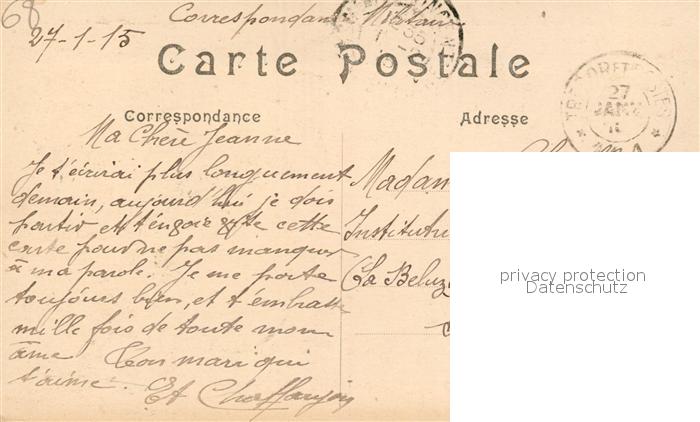 68
Correspondance Militaire
27-1-15
Carte Postale
TRESOR ET POSTES
27
JANV
Correspondance
Adresse
Ma Chère Jeanne
Je t'écrirai plus longuement
demain, aujourd'hui je dois
partir, et t'envoie cette
carte pour ne pas manquer
à ma parole. Je me porte
toujours bien, et t'embrasse
mille fois de toute mon
âme Ton mari qui
t'aime. Et Chaffanjon
Madam
Institutri
La Beluz
privacy protection
Datenschutz